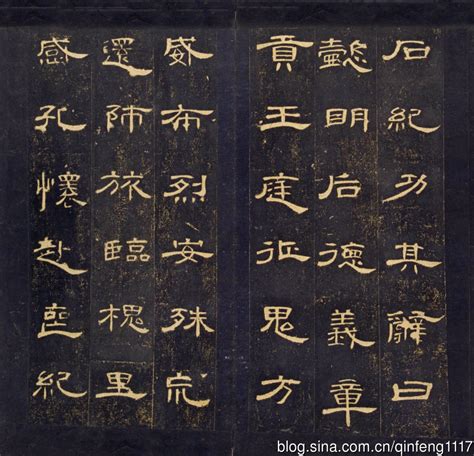 石紀功其辭曰
懿明后德義章
貢王庭征鬼方
威布烈安殊巟
還師旅臨槐里
感孔懷赴喪紀
blog.sina.com.cn/qinfeng1117